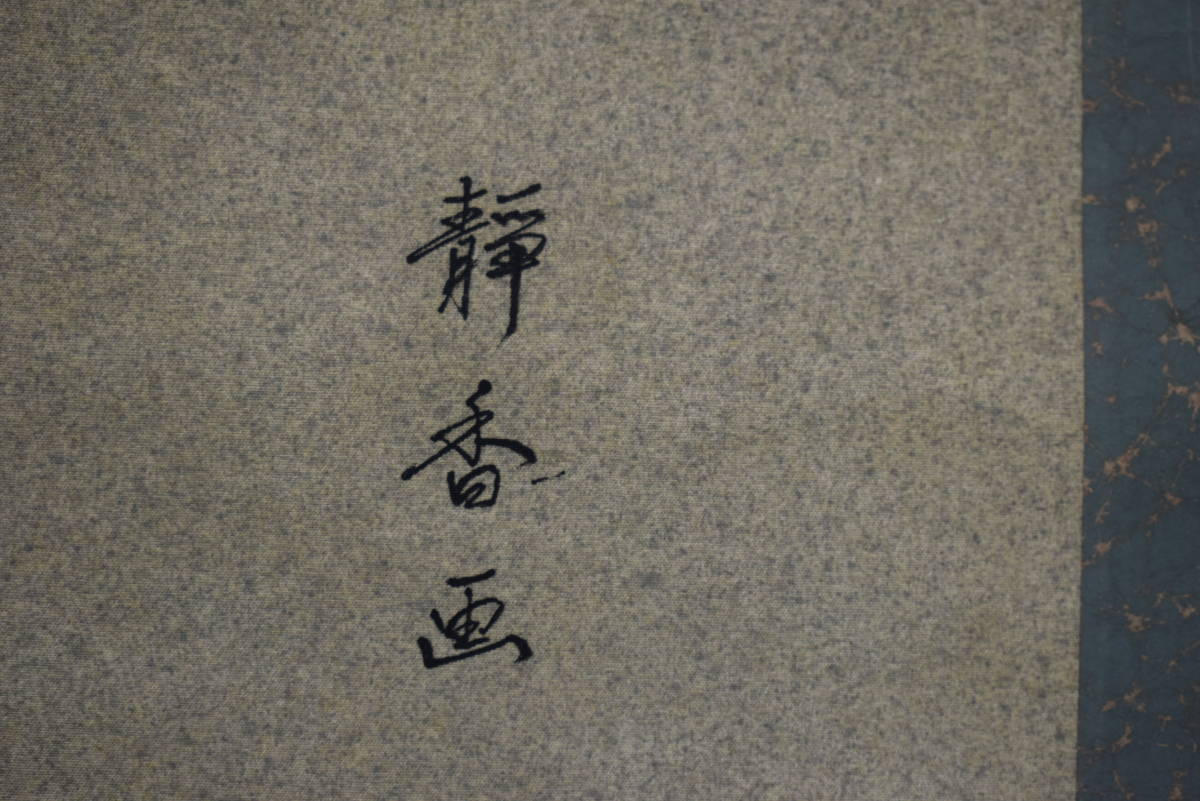 靜香画